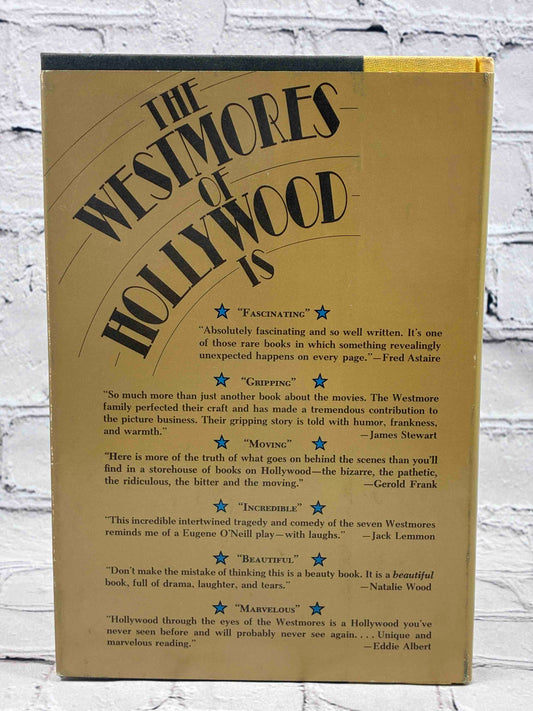 THE
WESTMORES
OF
HOLLYWOOD
IS
"FASCINATING"
"Absolutely fascinating and so well written. It's one
of those rare books in which something revealingly
unexpected happens on every page."—Fred Astaire
"GRIPPING"
"So much more than just another book about the movies. The Westmore
family perfected their craft and has made a tremendous contribution to
the picture business. Their gripping story is told with humor, frankness,
and warmth." —James Stewart
"MOVING"
"Here is more of the truth of what goes on behind the scenes than you'll
find in a storehouse of books on Hollywood—the bizarre, the pathetic,
the ridiculous, the bitter and the moving." —Gerold Frank
"INCREDIBLE"
"This incredible intertwined tragedy and comedy of the seven Westmores
reminds me of a Eugene O'Neill play—with laughs." —Jack Lemmon
"BEAUTIFUL"
"Don't make the mistake of thinking this is a beauty book. It is a beautiful
book, full of drama, laughter, and tears." —Natalie Wood
"MARVELOUS"
"Hollywood through the eyes of the Westmores is a Hollywood you've
never seen before and will probably never see again. . . . Unique and
marvelous reading." —Eddie Albert